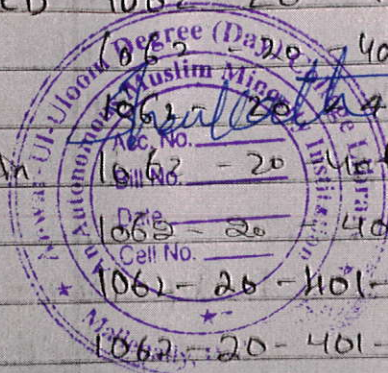 1062 - 20
1062 - 20 - 40
1062 - 20
1062 - 20 - 40
1062 - 20 - 40
1062 - 20 - 401 -
1062 - 20 - 401 -
Anwar-Ul-Uloom Degree (Day) College Library
An Autonomous Muslim Minority Institution
Acc. No.
Bill No.
Date
Cell No.
Mallepally,